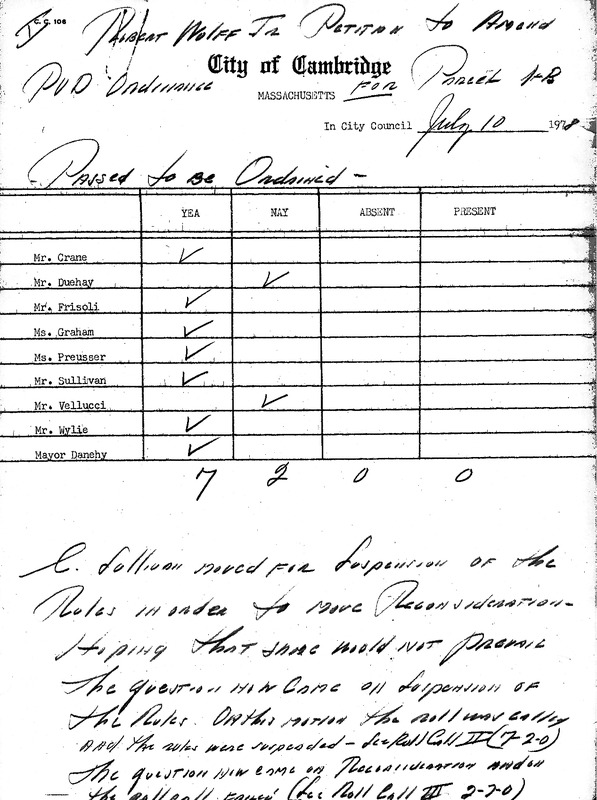 C.C. 106
Robert Wolff Jr Petition to Amend
PUD Ordinance FOR Parcel 1-B
City of Cambridge
MASSACHUSETTS
In City Council July 10 1978
Passed to be Ordained -
YEA NAY ABSENT PRESENT
Mr. Crane ✓
Mr. Duehay ✓
Mr. Frisoli ✓
Ms. Graham ✓
Ms. Preusser ✓
Mr. Sullivan ✓
Mr. Vellucci ✓
Mr. Wylie ✓
Mayor Danehy ✓
7 2 0 0
C. Sullivan moved for Suspension of the
Rules in order to move Reconsideration-
Hoping that same would not prevail
The question now came on Suspension of
the Rules. On this motion the roll was called
and the rules were suspended - See Roll Call II (7-2-0)
The question now came on Reconsideration and on
the roll call failed (See Roll Call III 2-7-0)